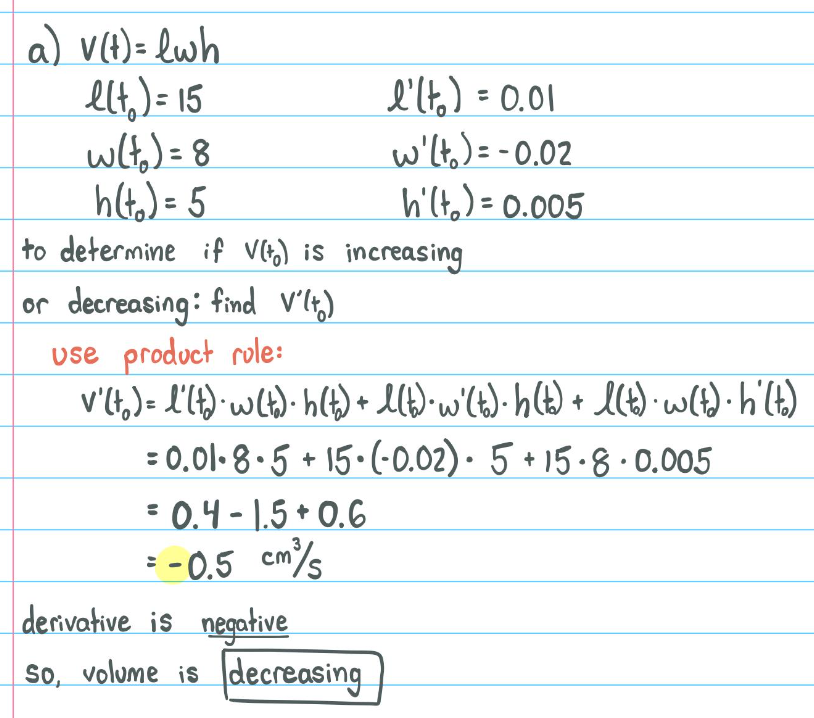 a) V(t) = lwh
l(t₀) = 15 l'(t₀) = 0.01
w(t₀) = 8 w'(t₀) = -0.02
h(t₀) = 5 h'(t₀) = 0.005
to determine if V(t₀) is increasing
or decreasing: find V'(t₀)
use product rule:
V'(t₀) = l'(t₀)·w(t₀)·h(t₀) + l(t₀)·w'(t₀)·h(t₀) + l(t₀)·w(t₀)·h'(t₀)
= 0.01·8·5 + 15·(-0.02)·5 + 15·8·0.005
= 0.4 - 1.5 + 0.6
= -0.5 cm³/s
derivative is negative
so, volume is decreasing